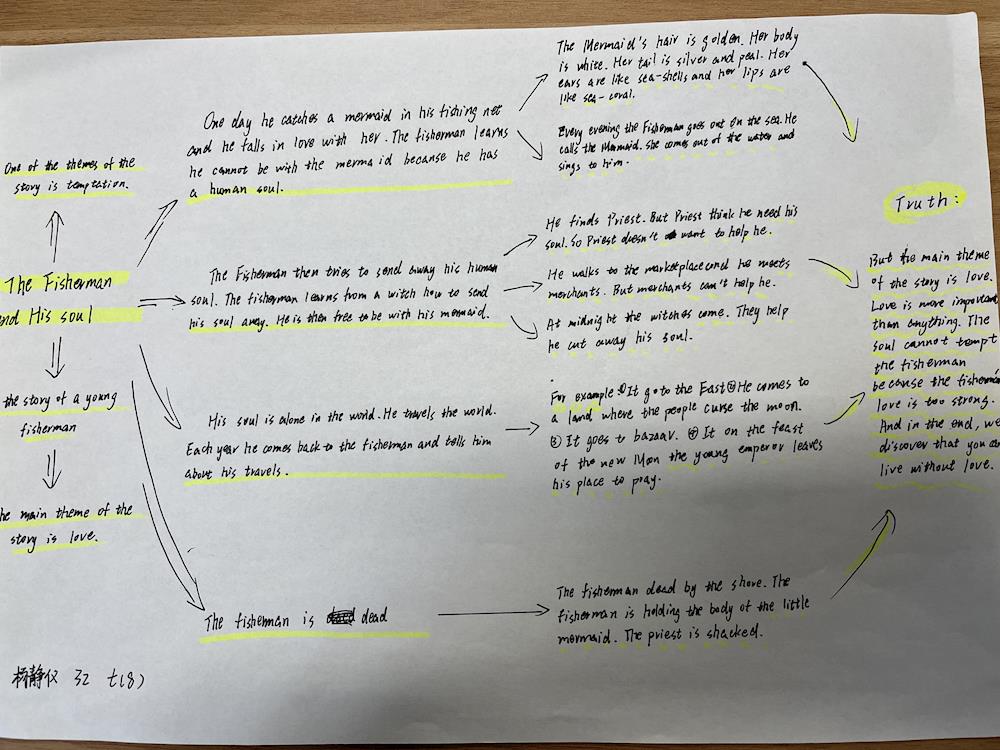 One of the themes of the
story is temptation.
The Fisherman
and His soul
the story of a young
fisherman
the main theme of the
story is love.
One day he catches a mermaid in his fishing net
and he falls in love with her. The fisherman learns
he cannot be with the mermaid because he has
a human soul.
The Fisherman then tries to send away his human
soul. The fisherman learns from a witch how to send
his soul away. He is then free to be with his mermaid.
His soul is alone in the world. He travels the world.
Each year he comes back to the fisherman and tells him
about his travels.
The fisherman is dead
The Mermaid's hair is golden. Her body
is white. Her tail is silver and peal. Her
ears are like sea-shells and her lips are
like sea-coral.
Every evening the Fisherman goes out on the sea. He
calls the Mermaid. She comes out of the water and
sings to him.
He finds Priest. But Priest think he need his
soul. So Priest doesn't want to help he.
He walks to the marketplace and he meets
merchants. But merchants can't help he.
At midnight the witches come. They help
he cut away his soul.
For example ①It go to the East ②He comes to
a land where the people curse the moon.
③ It goes to bazaar. ④ It on the feast
of the new Moon the young emperor leaves
his place to pray.
The fisherman dead by the shore. The
fisherman is holding the body of the little
mermaid. The priest is shacked.
Truth:
But the main theme
of the story is love.
Love is more important
than anything. The
soul cannot tempt
the fisherman
because the fisherman's
love is too strong.
And in the end, we
discover that you
live without love.
杨静仪 32 七(8)